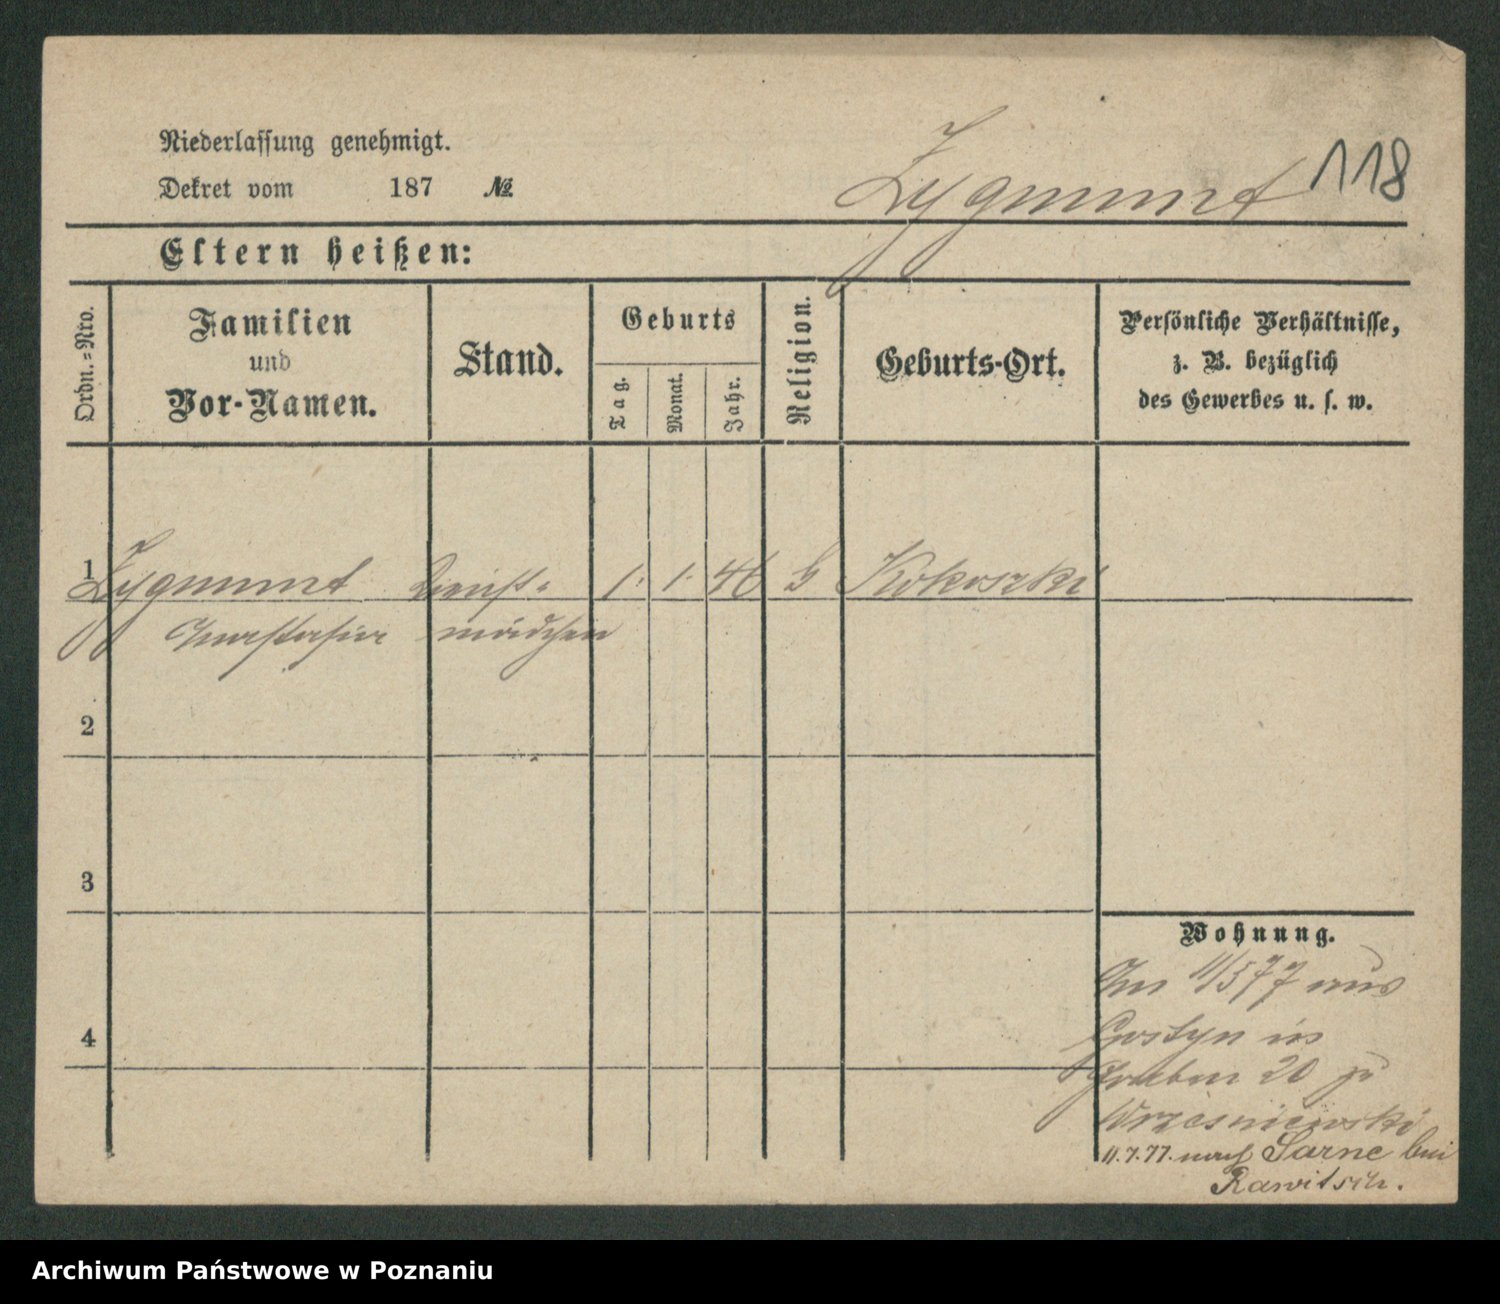 Niederlassung genehmigt.
Dekret vom 187 №
Zygmunt 118
Eltern heißen:
Ordn.-Nro.
Familien
und
Vor-Namen.
Stand.
Geburts
Tag.
Monat.
Jahr.
Religion.
Geburts-Ort.
Persönliche Verhältnisse,
z. B. bezüglich
des Gewerbes u. s. w.
1 Zygmunt Dienst- 1. 1. 46 Kokoszki
Anastasia mädchen
2
3
4
Wohnung.
Am 11/5 77 aus
Gostyn in
Graben 20 zu
Wrzesniewski
11.7.77. nach Sarne bei
Rawitsch.
Archiwum Państwowe w Poznaniu